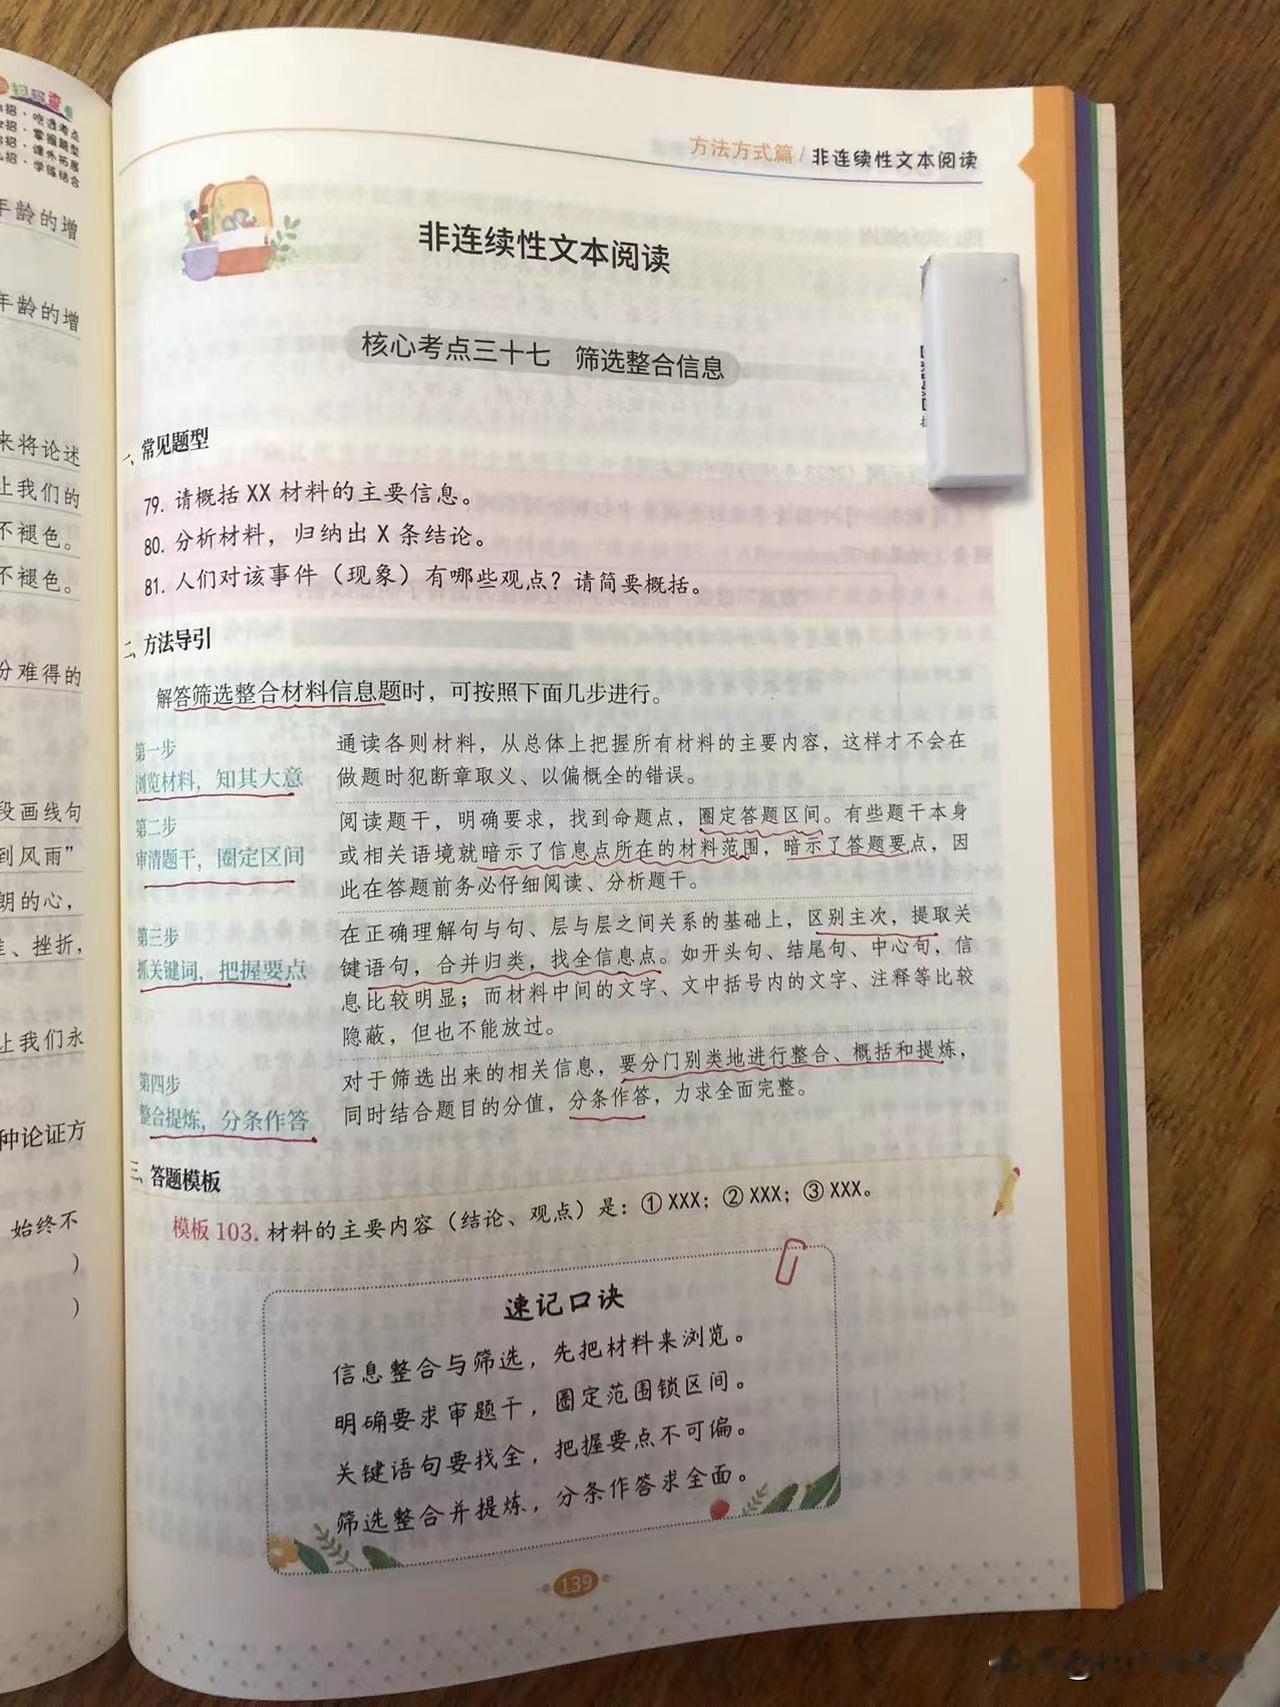 扫码查看
招·吃透考点
招·掌握题型
招·课外拓展
招·学练结合
年龄的增
年龄的增
来将论述
上我们的
不褪色。
不褪色。
分难得的
段画线句
到风雨”
朗的心，
、挫折，
让我们永
种论证方
始终不
)
)
方法方式篇/非连续性文本阅读
非连续性文本阅读
核心考点三十七 筛选整合信息
一、常见题型
79. 请概括 XX 材料的主要信息。
80. 分析材料，归纳出 X 条结论。
81. 人们对该事件（现象）有哪些观点？请简要概括。
二、方法导引
解答筛选整合材料信息题时，可按照下面几步进行。
第一步
浏览材料，知其大意
通读各则材料，从总体上把握所有材料的主要内容，这样才不会在
做题时犯断章取义、以偏概全的错误。
第二步
审清题干，圈定区间
阅读题干，明确要求，找到命题点，圈定答题区间。有些题干本身
或相关语境就暗示了信息点所在的材料范围，暗示了答题要点，因
此在答题前务必仔细阅读、分析题干。
第三步
抓关键词，把握要点
在正确理解句与句、层与层之间关系的基础上，区别主次，提取关
键语句，合并归类，找全信息点。如开头句、结尾句、中心句，信
息比较明显；而材料中间的文字、文中括号内的文字、注释等比较
隐蔽，但也不能放过。
第四步
整合提炼，分条作答
对于筛选出来的相关信息，要分门别类地进行整合、概括和提炼，
同时结合题目的分值，分条作答，力求全面完整。
三、答题模板
模板 103. 材料的主要内容（结论、观点）是：① XXX；② XXX；③ XXX。
速记口诀
信息整合与筛选，先把材料来浏览。
明确要求审题干，圈定范围锁区间。
关键语句要找全，把握要点不可偏。
筛选整合并提炼，分条作答求全面。
139